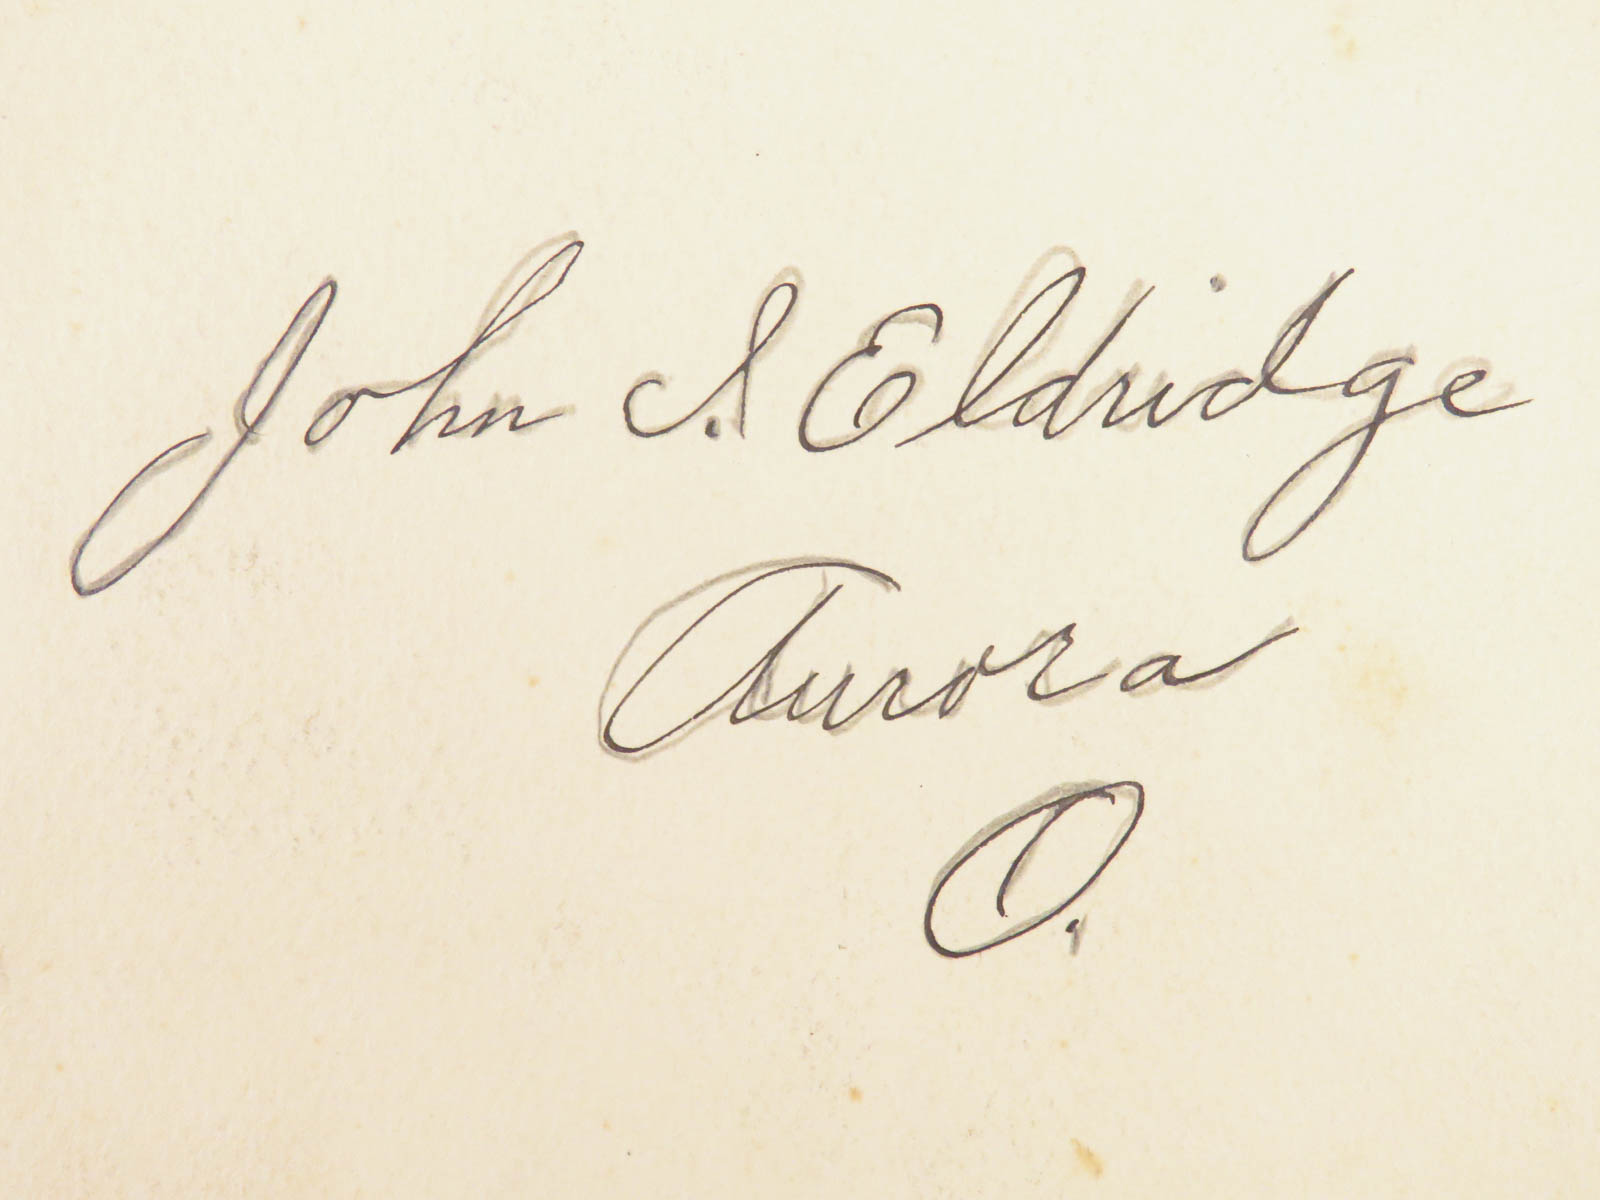 John S. Eldridge
Aurora
O.